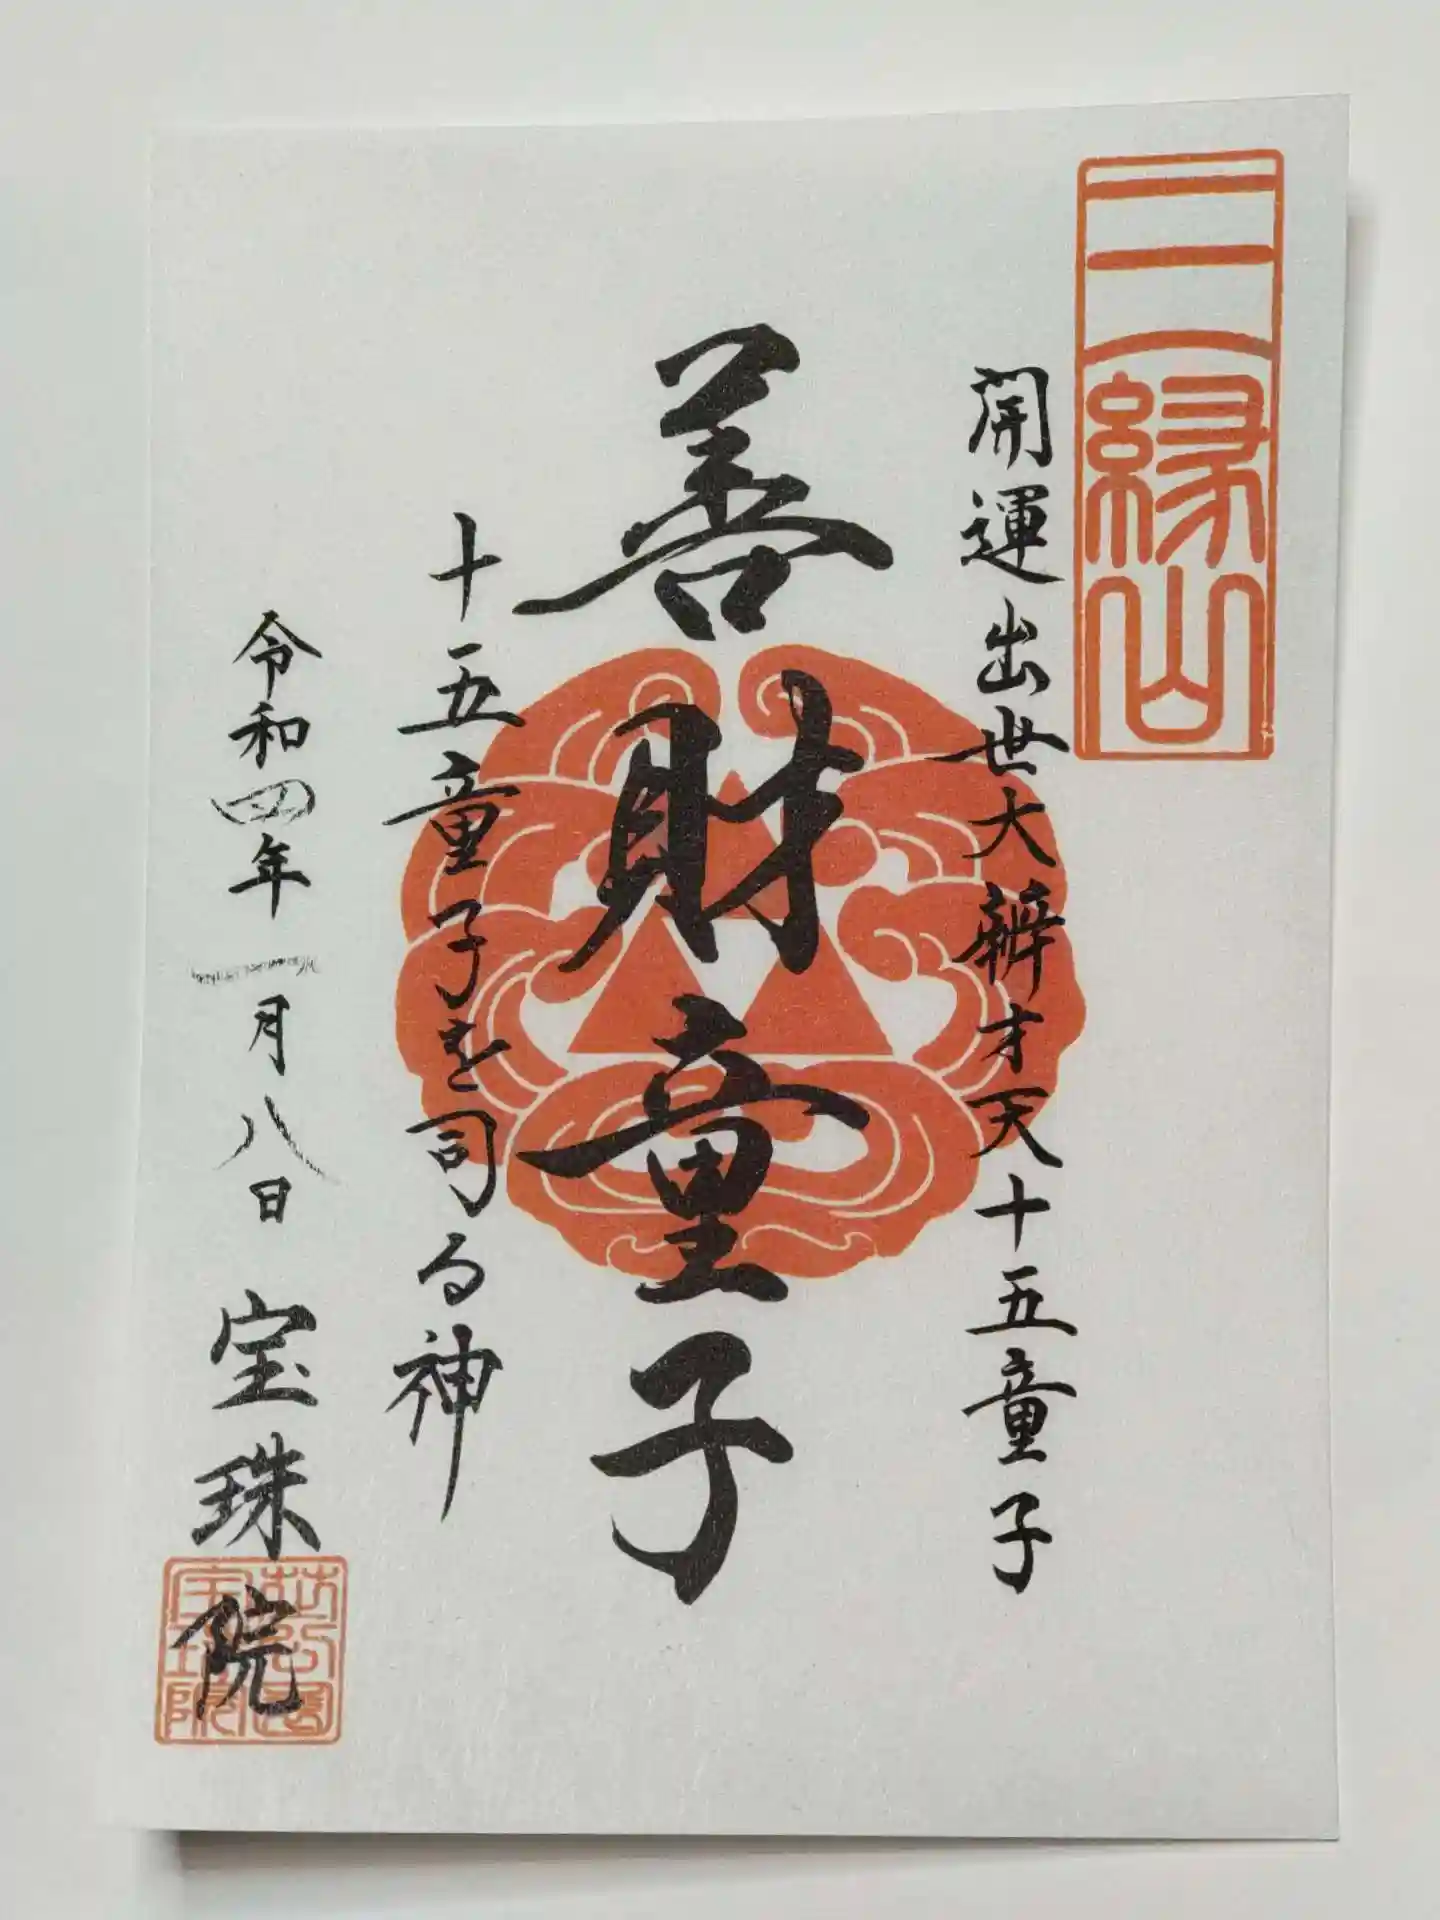 三縁山
開運出世大辨才天十五童子
善財童子
十五童子を司る神
令和四年一月八日 宝珠院
芝公園
宝珠院